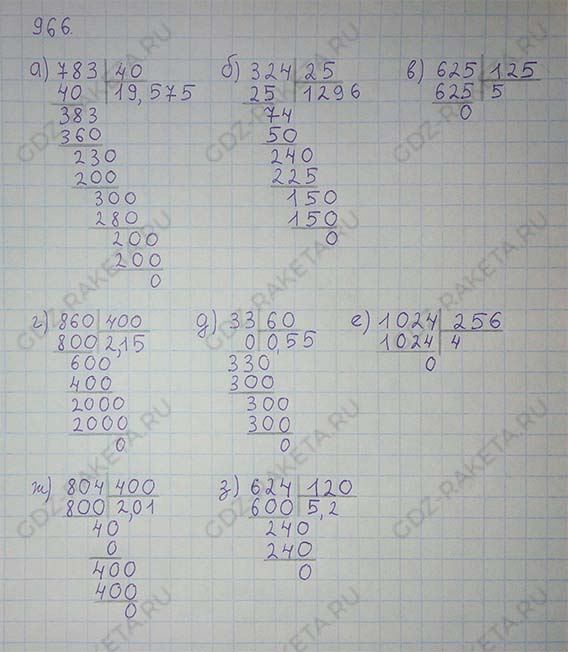 966.
а) 783 40 б) 324 25 в) 625 125
40 19,575 25 1296 625 5
383 74 0
360 50
230 240
200 225
300 150
280 150
200 0
200
0
г) 860 400 д) 33 60 е) 1024 256
800 2,15 0 0,55 1024 4
600 330 0
400 300
2000 300
2000 300
0 0
ж) 804 400 з) 624 120
800 2,01 600 5,2
40 240
0 240
400 0
400
0
GDZ-RAKETA.RU